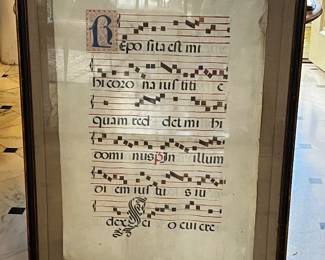 Reposita est mi
hi coro na ius titi e
quam red det mi hi
domi nus in illum
di em ius tu s iu
dex Ei o cui cre